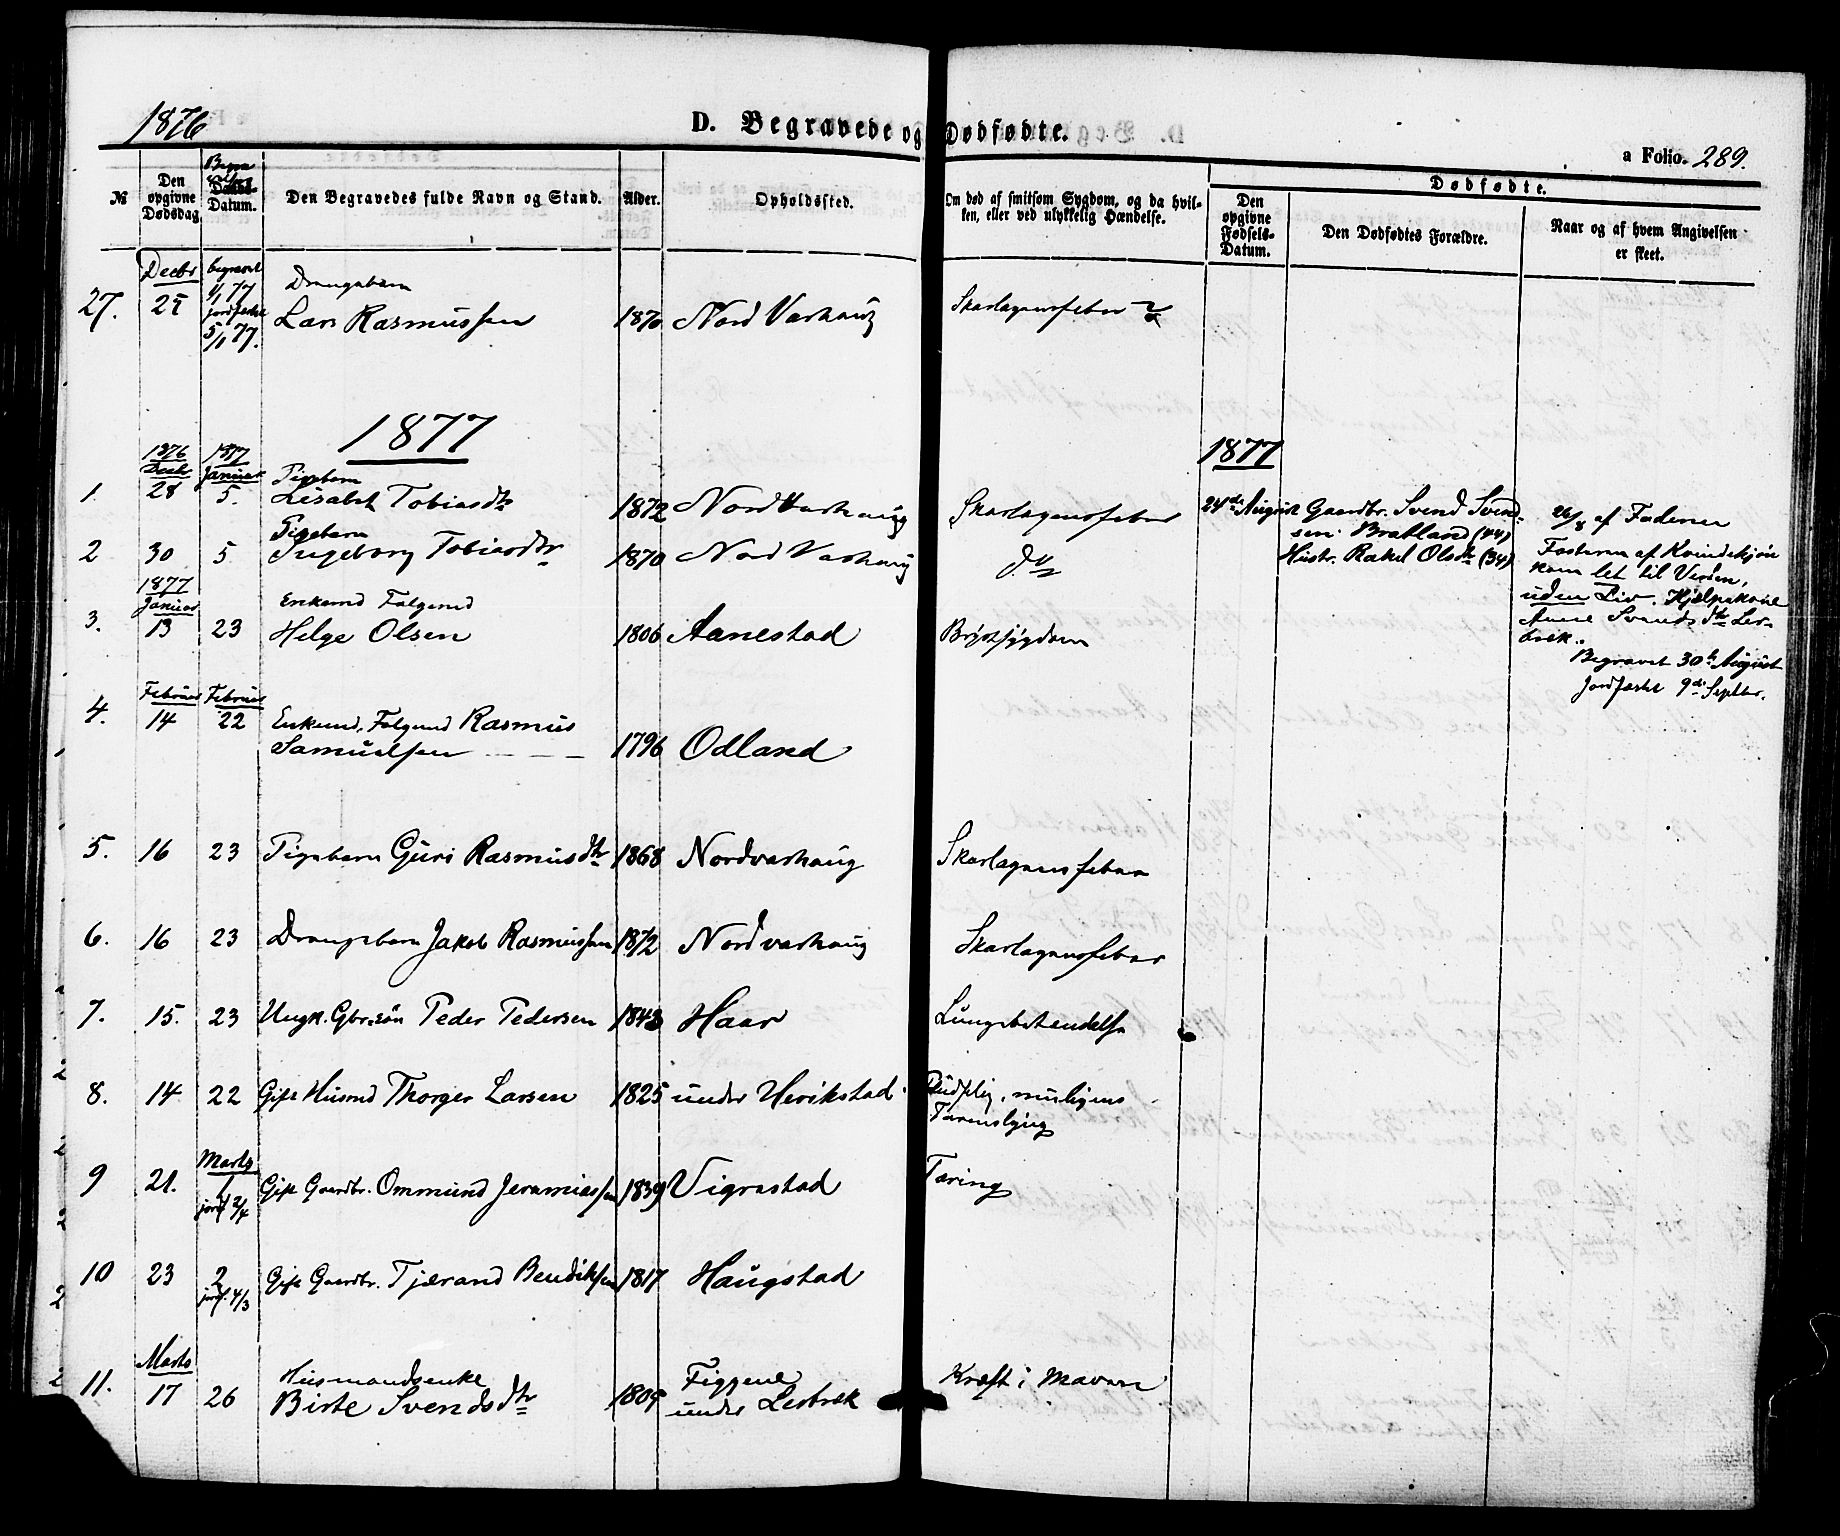 1876
D. Begravede og Dødfødte.
a Folio. 289.
Dødfødte.
№
Den opgivne Dødsdag
Datum.
Den Begravedes fulde Navn og Stand.
Alder.
Opholdssted.
Om død af smitsom Sygdom, og da hvilken, eller ved ulykkelig Hændelse.
Den opgivne Fødsels-Datum.
Den Dødfødtes Forældre.
Naar og af hvem Angivelsen er skeet.
Decbr begravet
1/1 77 Drengebarn
27. 25 jordfæstet Lars Rasmussen 1870 Nord Varhaug Skarlagensfeber
5/1 77.
1877
1877
1876 1877
Decbr Januar Pigebarn
1. 28 5. Lisabet Tobiasdtr 1872 Nord Varhaug Skarlagensfeber
24de August Gaardbr. Svend Svend-
sen Bratland (44)
Hustr. Rakel Olsdtr (34)
26/8 af Faderen
Fosteret af Kvindekjøn
kom let til Verden,
uden Liv. Hjælpekone
Anne Svendsdtr Ler-
bræk.
Begravet 30te August
Jordfæstet 9de Septbr.
Pigebarn
2 30 5 Ingeborg Tobiasdtr 1870 Nord Varhaug do
1877
Januar Enkemd Folgemd
3. 13 23 Helge Olsen 1806 Aanestad Brystsygdom
Februar Februar
4. 14 22 Enkemd. Folgemd Rasmus
Samuelsen 1796 Odland
5. 16 23 Pigebarn Guri Rasmusdtr 1868 Nordvarhaug Skarlagensfeber
6. 16 23 Drengebarn Jakob Rasmussen 1872 Nordvarhaug Skarlagensfeber
7. 15. 23 Ungk. Gbr.søn Peder Pedersen 1843 Haar Lungebetændelse
8. 14 22 Gift Husmd Thorger Larsen 1825 under Herikstad Pludselig, muligens
Tarenslyng
Marts
9 21. 1 Gift Gaardbr. Ommund Jeremiassen 1839 Vigrestad Tæring
jordf 2/4
10 23 2 Gift Gaardbr. Tjærand Bendiksen 1817 Haugstad
jordf. 4/3
Marts Husmandsenke Figgene
11. 17 26 Birte Svendsdtr 1805 under Lerbræk Kræft i Maven